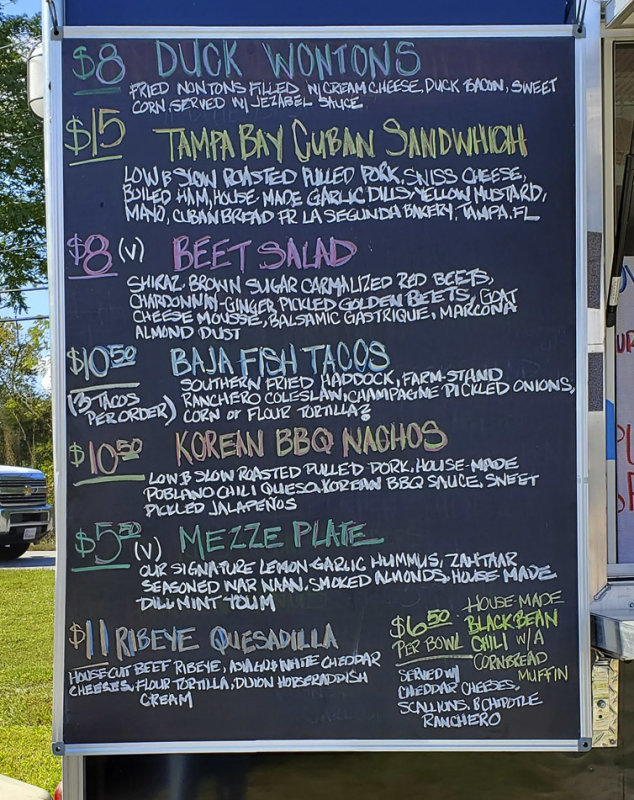 $8 DUCK WONTONS
FRIED WONTONS FILLED W/ CREAM CHEESE, DUCK BACON, SWEET
CORN SERVED W/ JEZABEL SAUCE
$15 TAMPA BAY CUBAN SANDWHICH
LOW & SLOW ROASTED PULLED PORK, SWISS CHEESE,
BOILED HAM, HOUSE MADE GARLIC DILLS, YELLOW MUSTARD,
MAYO, CUBAN BREAD FR LA SEGUNDA BAKERY, TAMPA, FL
$8 (V) BEET SALAD
SHIRAZ, BROWN SUGAR CARMALIZED RED BEETS,
CHARDONNAY-GINGER PICKLED GOLDEN BEETS, GOAT
CHEESE MOUSSE, BALSAMIC GASTRIQUE, MARCONA
ALMOND DUST
$10.50 BAJA FISH TACOS
(3 TACOS PER ORDER)
SOUTHERN FRIED HADDOCK, FARM-STAND
RANCHERO COLESLAW, CHAMPAGNE PICKLED ONIONS,
CORN or FLOUR TORTILLA?
$10.50 KOREAN BBQ NACHOS
LOW & SLOW ROASTED PULLED PORK, HOUSE-MADE
POBLANO CHILI QUESO, KOREAN BBQ SAUCE, SWEET
PICKLED JALAPEÑOS
$5.50 (V) MEZZE PLATE
OUR SIGNATURE LEMON-GARLIC HUMMUS, ZAHTAAR
SEASONED NAR NAAN, SMOKED ALMONDS, HOUSE MADE
DILL MINT TOUM
$11 RIBEYE QUESADILLA
HOUSE CUT BEEF RIBEYE, ASIAGO & WHITE CHEDDAR
CHEESES, FLOUR TORTILLA, DIJON HORSERADDISH
CREAM
$6.50 PER BOWL
HOUSE-MADE
BLACK BEAN
CHILI W/ A
CORNBREAD
MUFFIN
SERVED W/
CHEDDAR CHEESES,
SCALLIONS, & CHIPOTLE
RANCHIERO